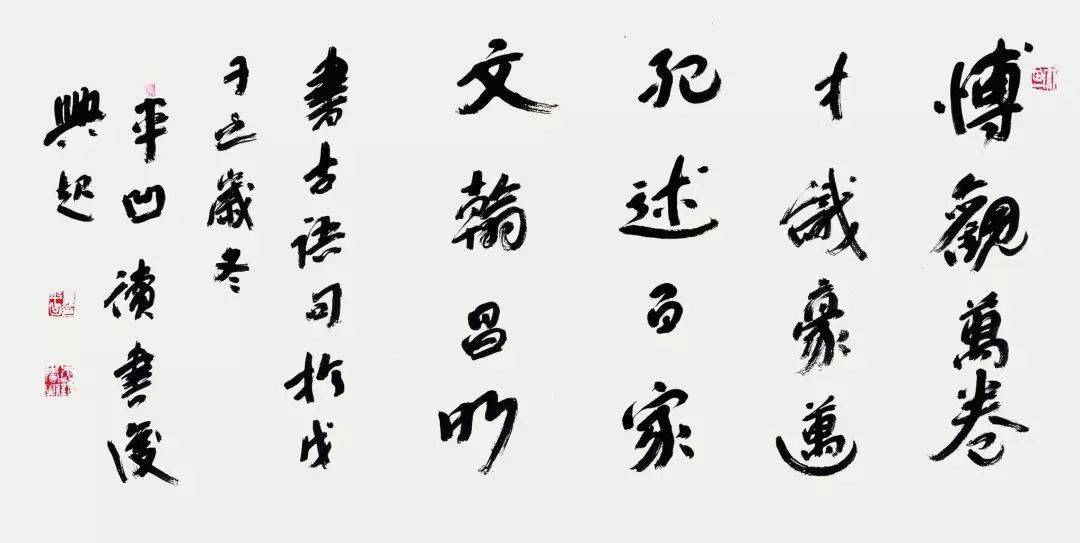 博觀萬卷
才識豪邁
述百家
文翰昌明
書古語句於戊
子之歲冬
平凹讀書後
興起